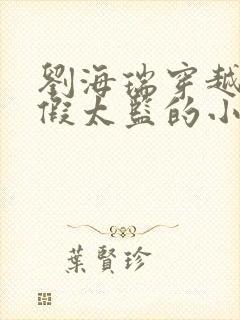 劉海瑞穿越
假太監的小
葉賢珍